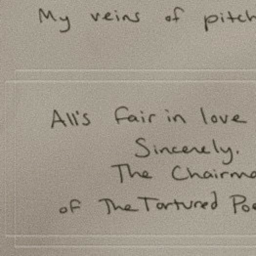 My veins of pitch
All's fair in love
Sincerely,
The Chairma
of The Tortured Poe